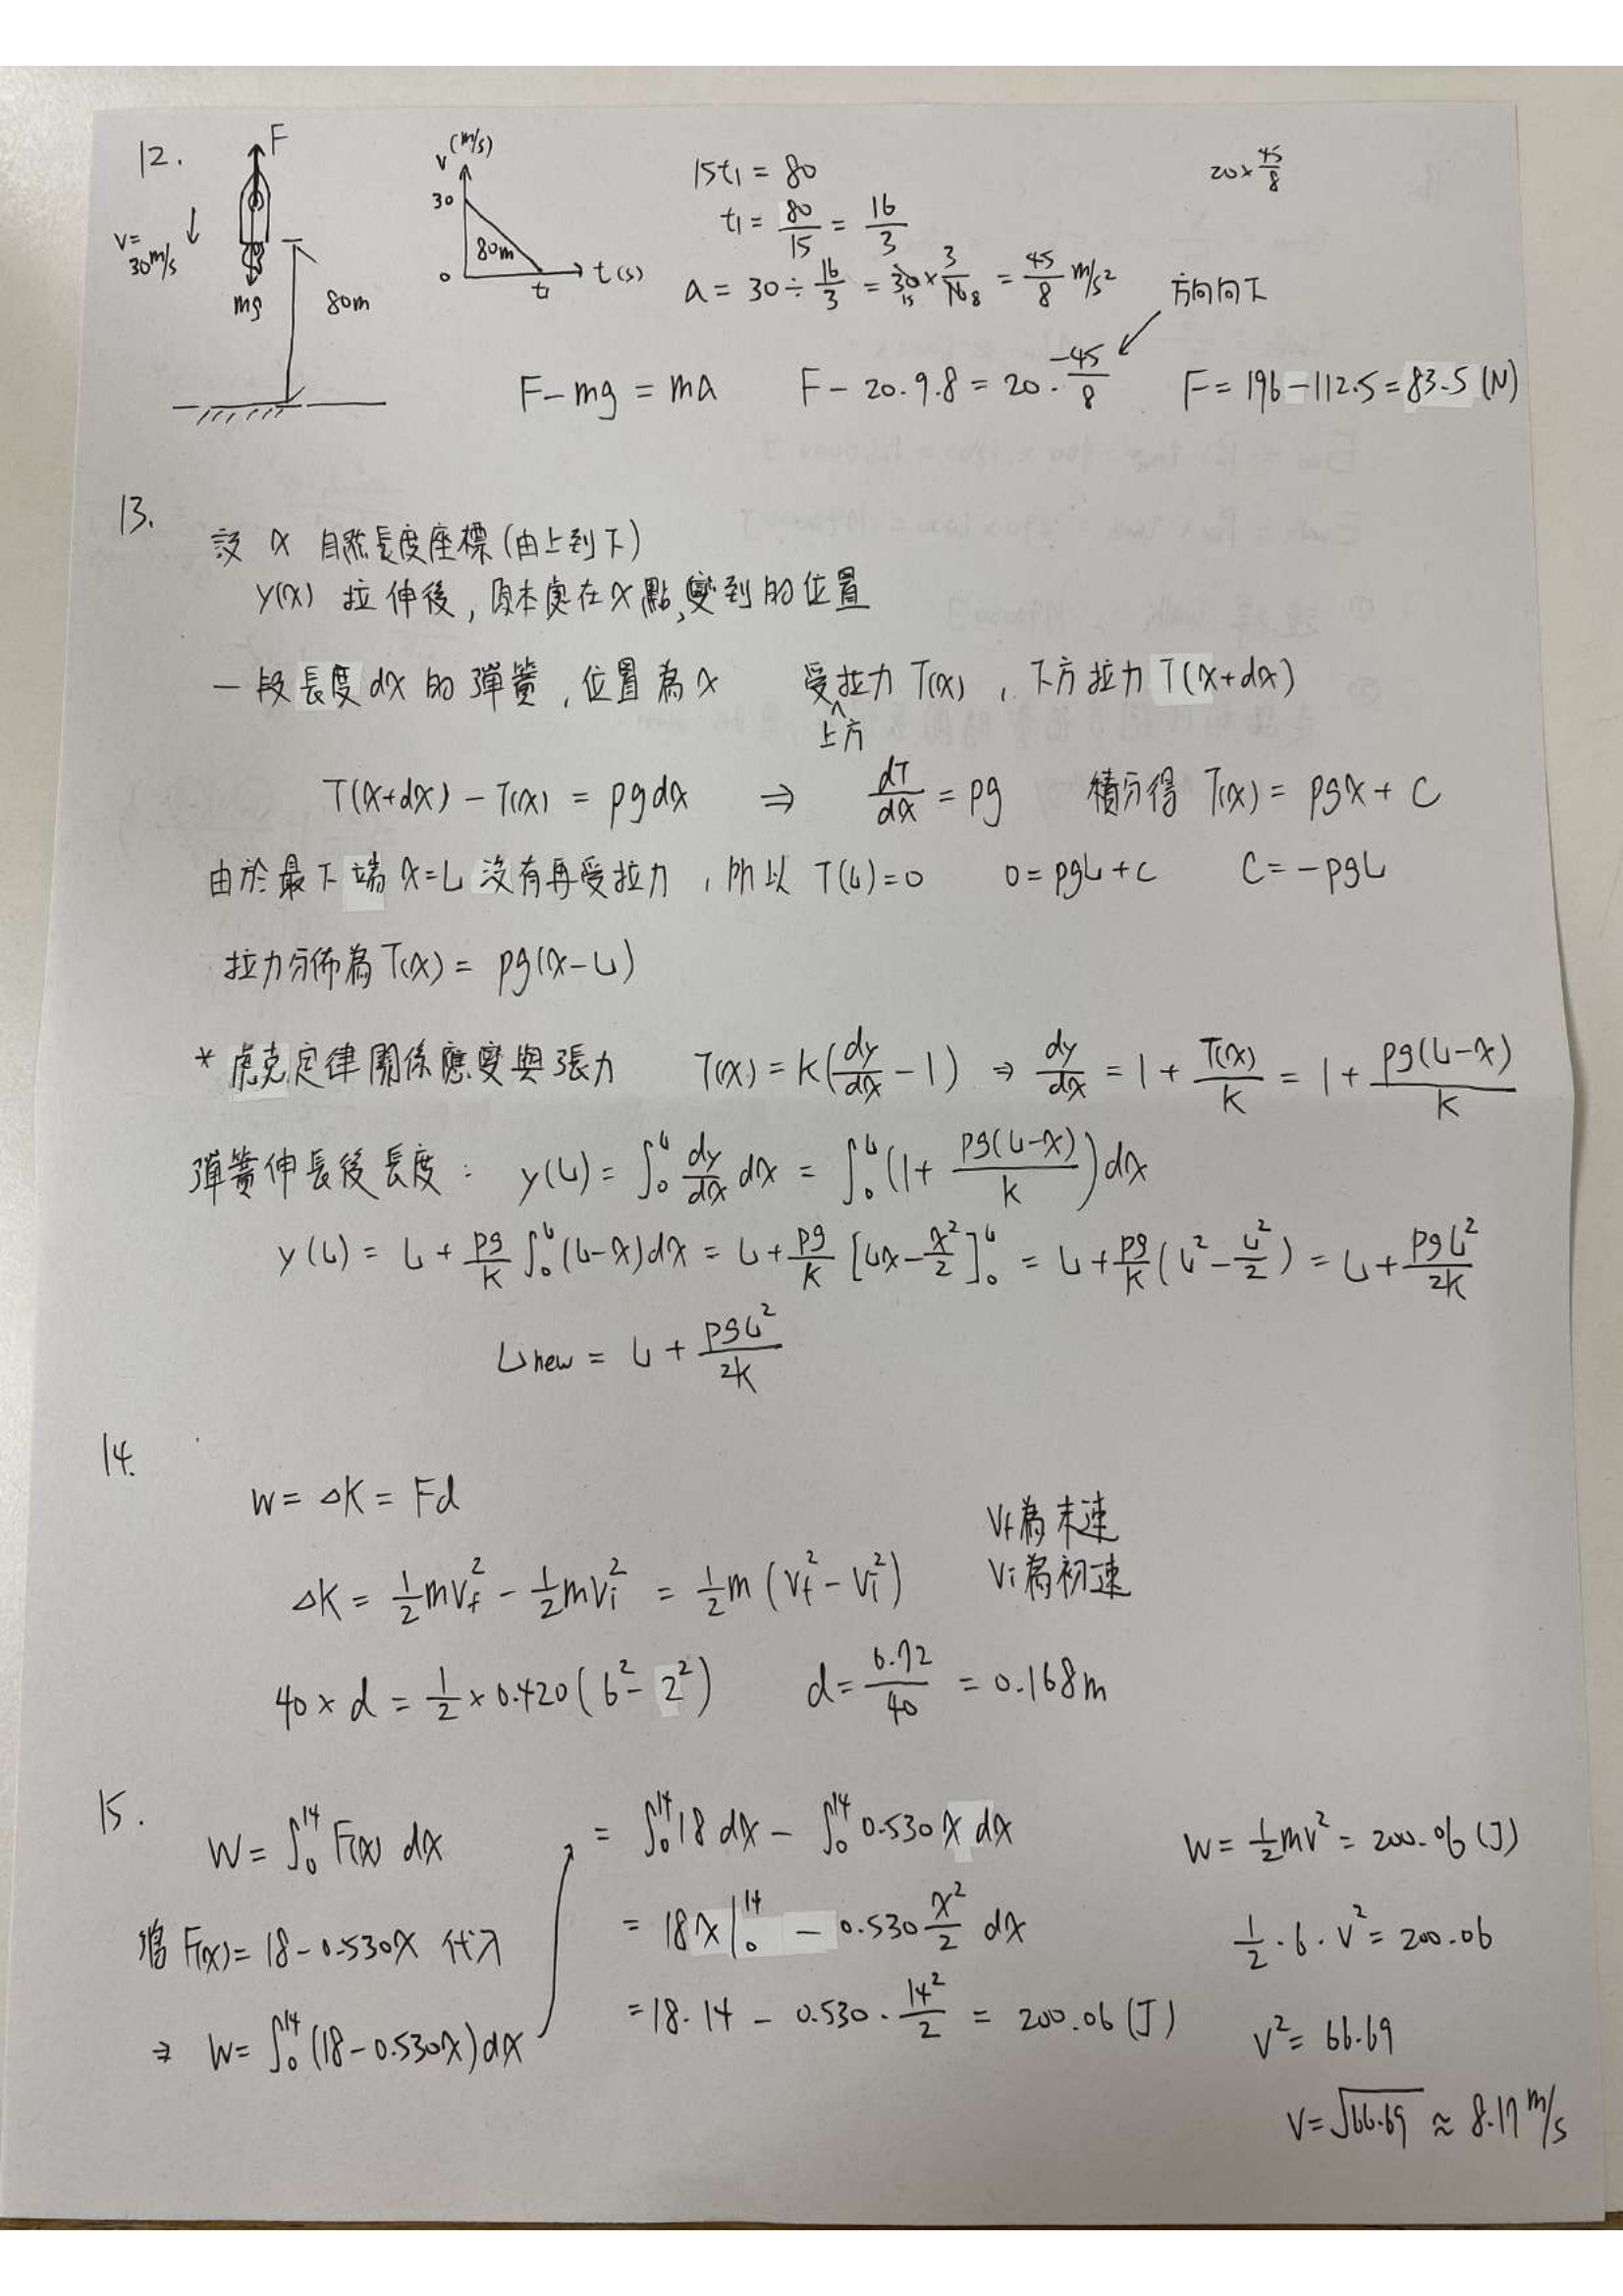 12.
F
v=
30m/s
mg
80m
v (m/s)
30
80m
0
t1
t(s)
15t1 = 80
t1 = 80/15 = 16/3
a = 30 ÷ 16/3 = 30 15 × 3/16 8 = 45/8 m/s²
方向向下
20 × 45/8
F - mg = ma F - 20·9.8 = 20·-45/8 F = 196 - 112.5 = 83.5 (N)
13.
設 x 自然長度座標(由上到下)
y(x) 拉伸後, 原本處在x點, 變到的位置
一段長度dx的彈簧, 位置為x 受上方拉力 T(x), 下方拉力T(x+dx)
T(x+dx) - T(x) = ρgdx ⇒ dT/dx = ρg 積分得 T(x) = ρgx + C
由於最下端 x=L 沒有再受拉力, 所以 T(L)=0 0 = ρgL + C C = -ρgL
拉力分佈為T(x) = ρg(x-L)
* 虎克定律關係應變與張力 T(x) = K(dy/dx - 1) ⇒ dy/dx = 1 + T(x)/K = 1 + ρg(L-x)/K
彈簧伸長後長度: y(L) = ∫₀ᴸ dy/dx dx = ∫₀ᴸ (1 + ρg(L-x)/K) dx
y(L) = L + ρg/K ∫₀ᴸ (L-x)dx = L + ρg/K [Lx - x²/2]₀ᴸ = L + ρg/K (L² - L²/2) = L + ρgL²/2K
Lnew = L + ρgL²/2K
14.
W = ΔK = Fd
Vf為末速
Vi為初速
ΔK = 1/2 mVf² - 1/2 mVi² = 1/2 m (Vf² - Vi²)
40 × d = 1/2 × 0.420 (6² - 2²) d = 6.72/40 = 0.168m
15.
W = ∫₀¹⁴ F(x) dx
將 F(x) = 18 - 0.530x 代入
⇒ W = ∫₀¹⁴ (18 - 0.530x) dx
= ∫₀¹⁴ 18 dx - ∫₀¹⁴ 0.530x dx
= 18x|₀¹⁴ - 0.530 x²/2 dx
= 18·14 - 0.530 · 14²/2 = 200.06 (J)
W = 1/2 mv² = 200.06 (J)
1/2 · 6 · V² = 200.06
V² = 66.69
V = √66.69 ≈ 8.17 m/s